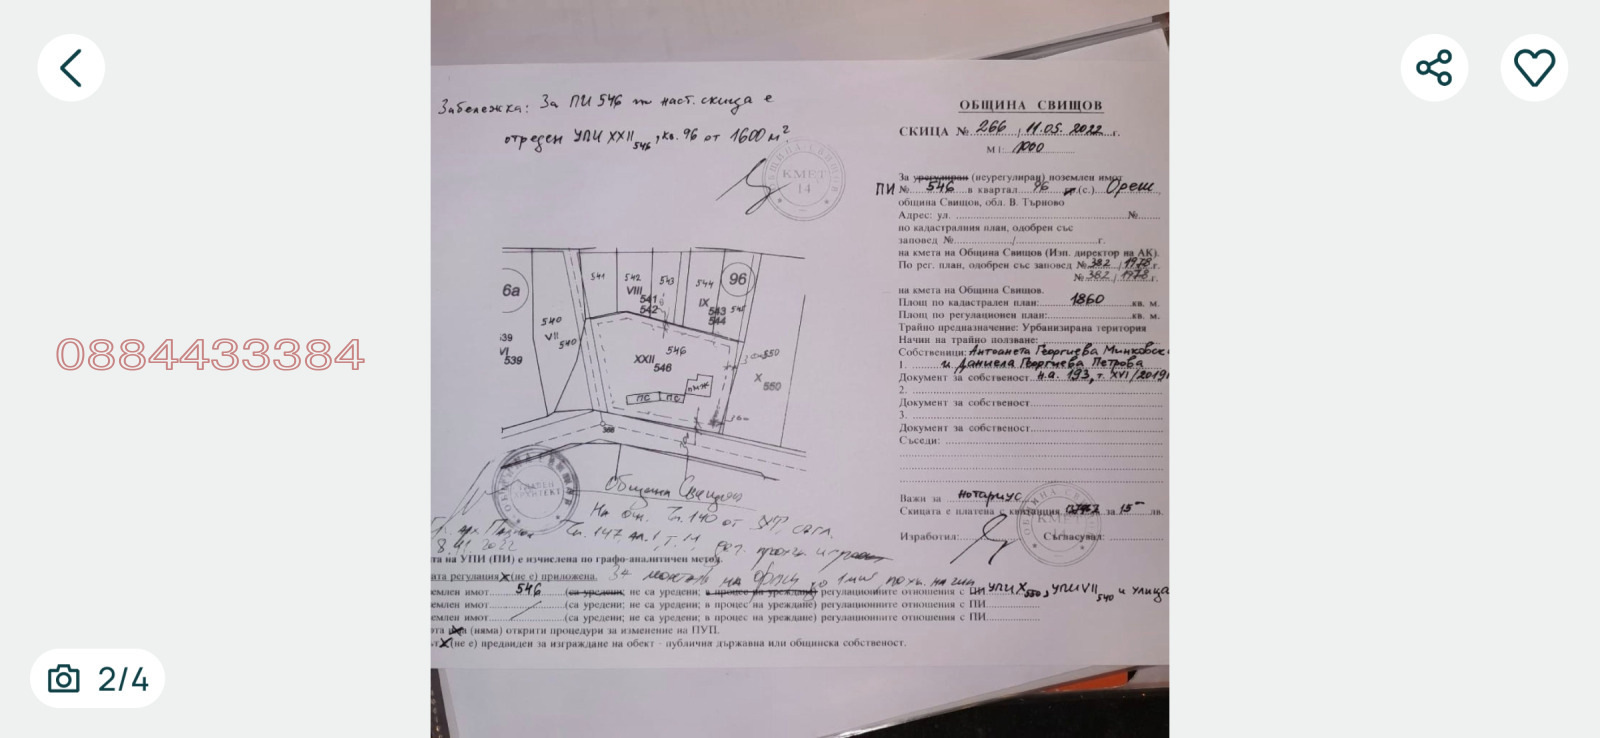 Забележка: За ПИ 546 от наст. скица е
отреден УПИ XXII 546, кв. 96 от 1600 м²
КМЕТ
14
ОБЩИНА СВИЩОВ
СКИЦА № 266 / 11.05.2022 г.
М 1: 1000
За урегулиран (неурегулиран) поземлен имот
ПИ № 546 в квартал 96 (с.) Ореш,
община Свищов, обл. В. Търново
Адрес: ул. №
по кадастралния план, одобрен със
заповед № / г.
на кмета на Община Свищов (Изп. директор на АК).
По рег. план, одобрен със заповед № 382 / 1978 г.
№ 382 / 1978 г.
на кмета на Община Свищов.
Площ по кадастрален план: 1860 кв. м.
Площ по регулационен план: кв. м.
Трайно предназначение: Урбанизирана територия
Начин на трайно ползване:
Собственици: Антоанета Георгиева Минковск
1. и Даниела Георгиева Петрова
Документ за собственост н.а. 193, т. XVI/2019
2.
Документ за собственост
3.
Документ за собственост
Съседи:
Важи за нотариус
Скицата е платена с квитанция за 15 лв.
Изработил: Съгласувал:
6а
541
542
543
544
545
96
VIII
541
542
IX
543
544
540
VII
540
539
VI
539
546
XXII
546
550
X
550
ПС
ПС
МЖ
366
Община Свищов
На осн. Чл. 140 от ЗУТ
Чл. 147, ал. 1, т. 14
та на УПИ (ПИ) е изчислена по графо-аналитичен метод.
ата регулация (не е) приложена.
емлен имот 546 (са уредени; не са уредени; в процес на уреждане) регулационните отношения с ПИ УПИ X 550, УПИ VII 540 и улица
емлен имот (са уредени; не са уредени; в процес на уреждане) регулационните отношения с ПИ
емлен имот (са уредени; не са уредени; в процес на уреждане) регулационните отношения с ПИ
ата има (няма) открити процедури за изменение на ПУП.
(не е) предвиден за изграждане на обект - публична държавна или общинска собственост.
0884433384
2/4